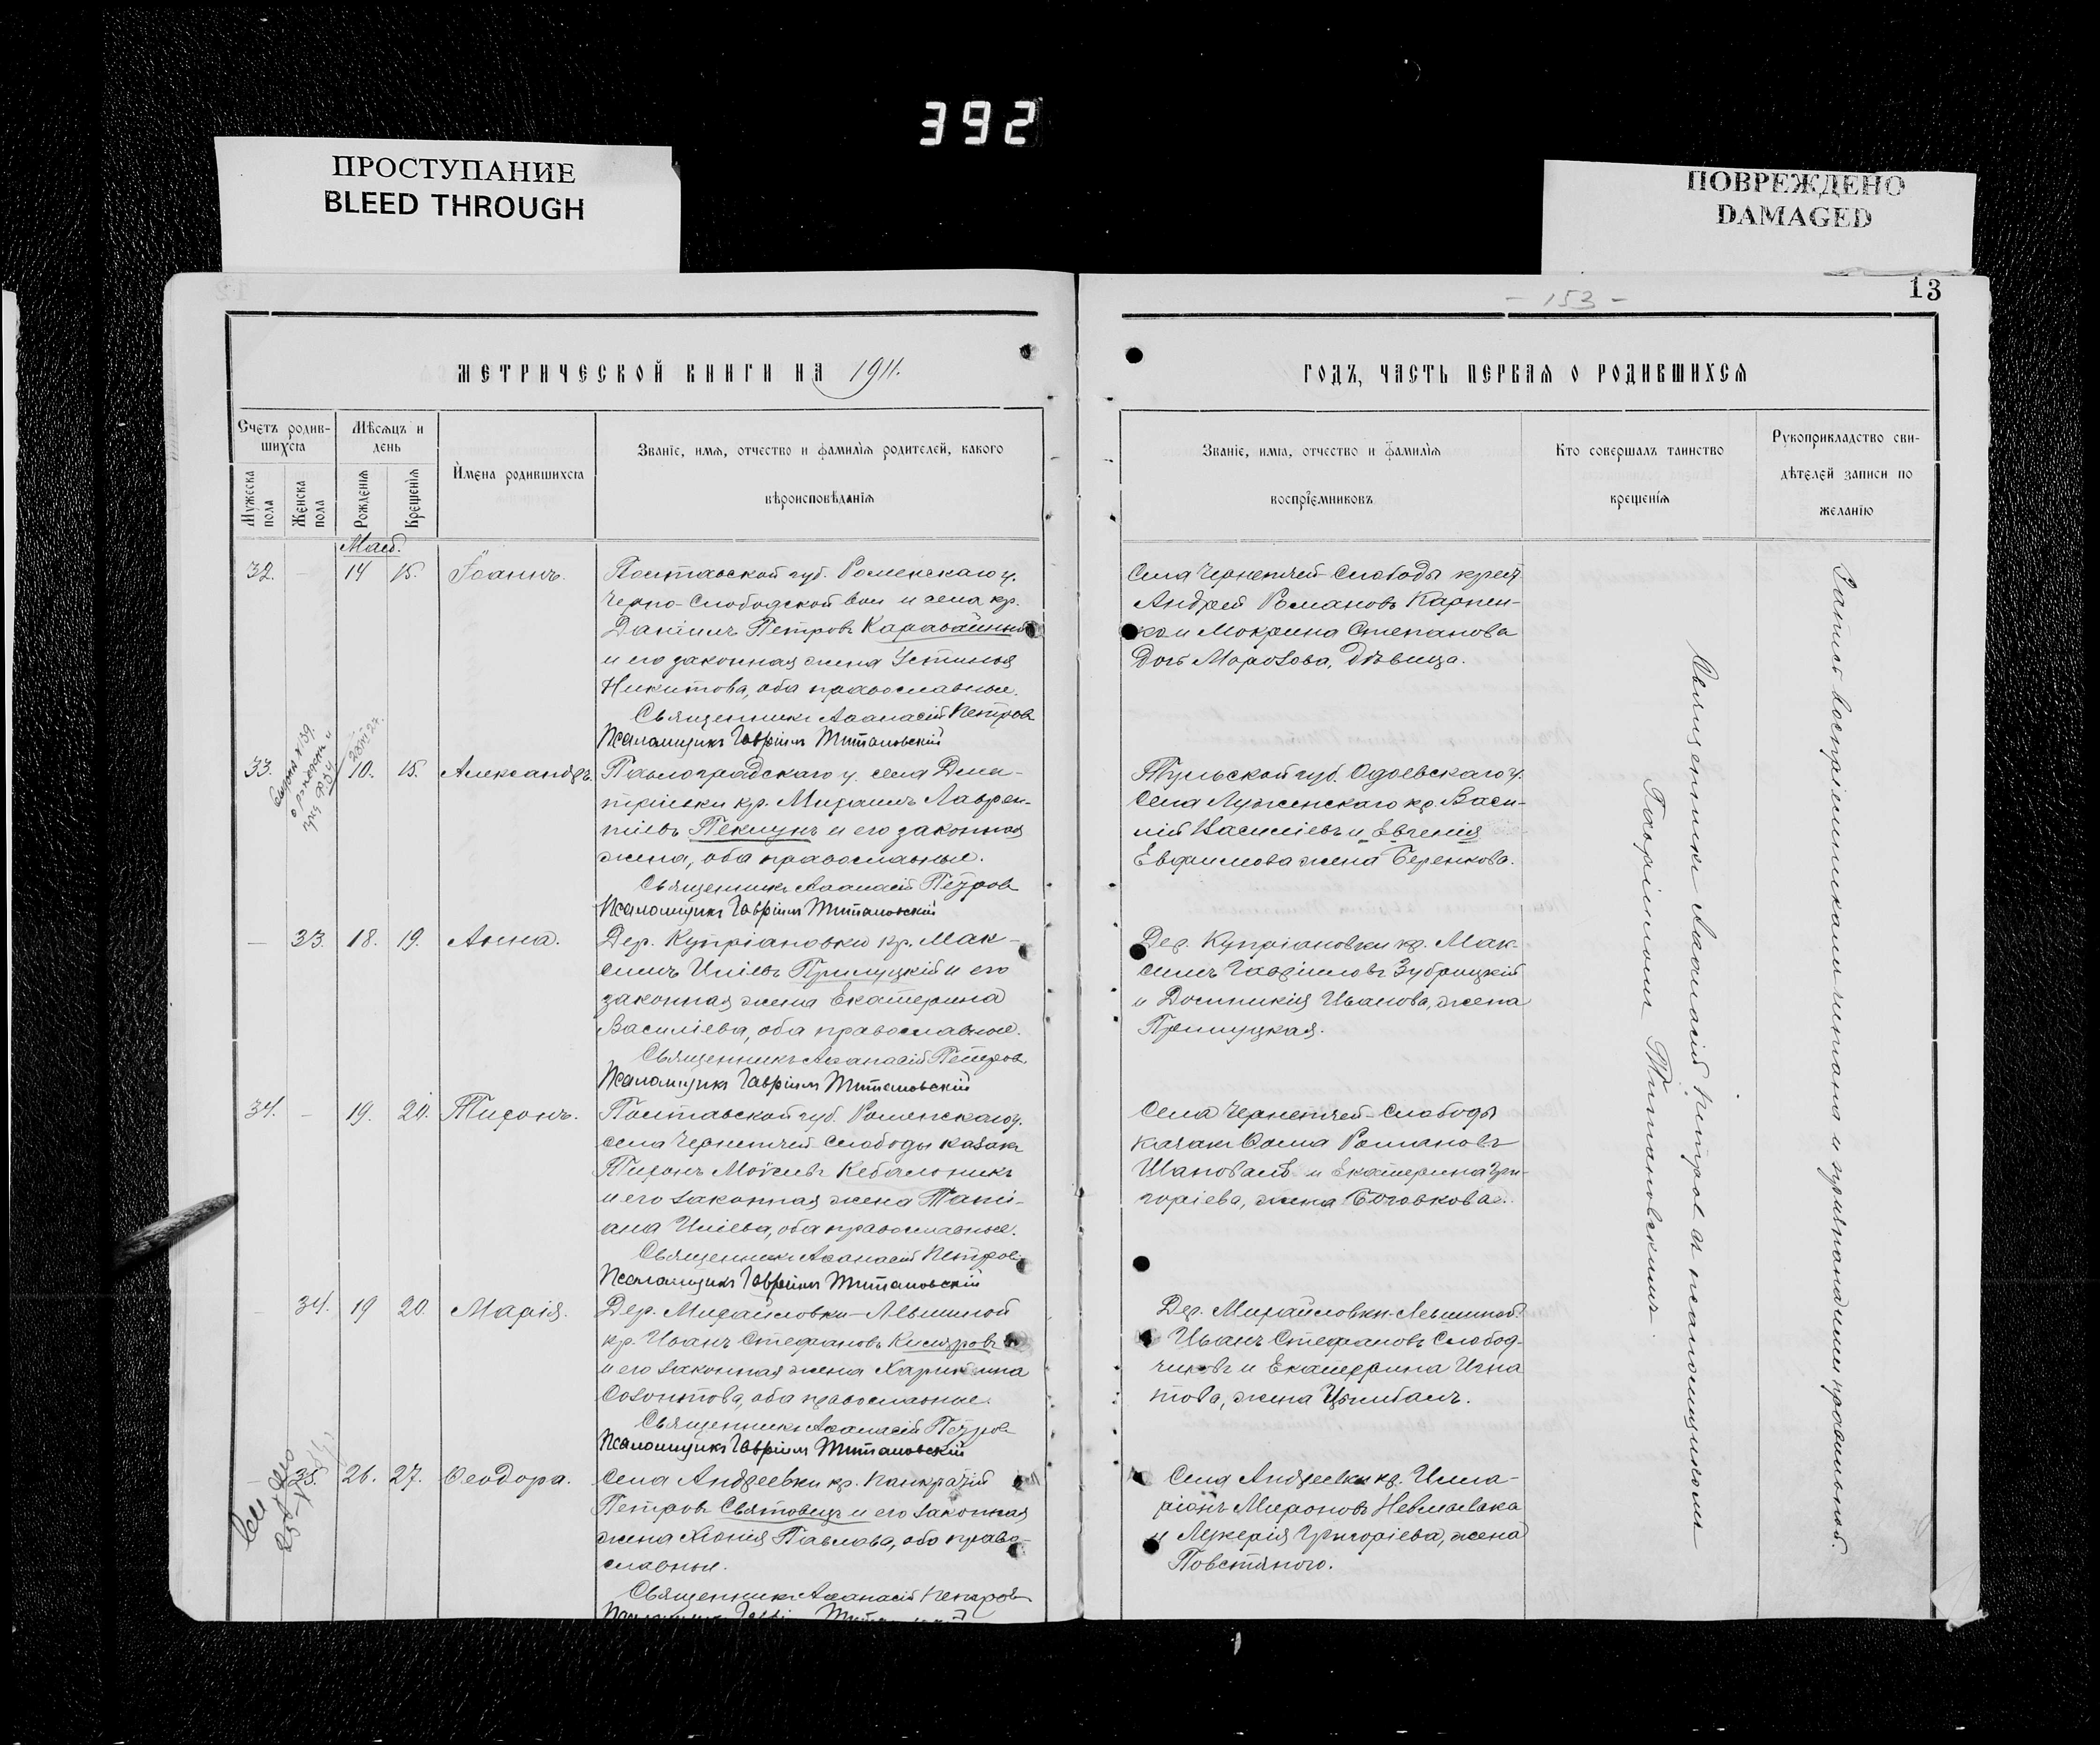 392
ПРОСТУПАНИЕ
BLEED THROUGH
ПОВРЕЖДЕНО
DAMAGED
- 153 -
13
МЕТРИЧЕСКОЙ КНИГИ НА 1911.
ГОДЪ, ЧАСТЬ ПЕРВАЯ О РОДИВШИХСЯ
Счетъ родив-
шихся
Мужеска
пола
Женска
пола
Мѣсяцъ и
день
Рожденія
Крещенія
Имена родившихся
Званіе, имя, отчество и фамилія родителей, какого
вѣроисповѣданія
Званіе, имя, отчество и фамилія
воспріемниковъ
Кто совершалъ таинство
крещенія
Рукоприкладство сви-
дѣтелей записи по
желанію
Май.
32. - 14 15. Іоаннъ.
Полтавской губ. Роменскаго у.
Черно-Слободской вол и села кр.
Даніилъ Петровъ
и его законная жена Устинья
Никитова, оба православные.
Священникъ Аѳанасій Петровъ
Псаломщикъ Гавріилъ Титановскій
Села Чернечей-Слободы крест
Андрей Романовъ Карпен-
ко и Мокрина Степанова
дочь Морозова, дѣвица.
33. 10. 15. Александръ.
Павлоградскаго у. села Дми-
тріевки кр. Михаилъ Лаврен-
тіевъ Пеклунъ и его законная
жена, оба православные.
Священникъ Аѳанасій Петровъ
Псаломщикъ Гавріилъ Титановскій
Тульской губ. Одоевскаго у.
села кр. Васи-
лій Василіевъ и Евгенія
Евфимова жена Беренкова.
- 33. 18. 19. Анна.
Дер. Купріановки кр. Мак-
симъ Иліевъ Прилуцкій и его
законная жена Екатерина
Василіева, оба православные.
Священникъ Аѳанасій Петровъ
Псаломщикъ Гавріилъ Титановскій
Дер. Купріановки кр. Мак-
симъ Гавріиловъ Зубрицкій
и Домникія Иванова, жена
Прилуцкая.
34. - 19. 20. Тихонъ.
Полтавской губ. Роменскаго у.
села Чернечей Слободы казакъ
Тихонъ Моѵсеевъ
и его законная жена Тати-
ана Иліева, оба православные.
Священникъ Аѳанасій Петровъ
Псаломщикъ Гавріилъ Титановскій
Села Чернечей-Слободы
казакъ Ѳома Романовъ
Шаповалъ и Екатерина Гри-
горіева, жена
- 34. 19 20. Марія.
Дер. Михайловки-Лѣвшиной
кр. Иванъ Стефановъ
и его законная жена Харитина
Созонтова, оба православные.
Священникъ Аѳанасій Петровъ
Псаломщикъ Гавріилъ Титановскій
Дер. Михайловки-Левшиной
Иванъ Стефановъ Слобод-
чиковъ и Екатерина Игна
това, жена Цимбалъ.
- 35. 26. 27. Ѳеодора.
Села Андреевки кр. Панкратій
Петровъ Святовецъ и его законная
жена Хіонія Павлова, оба право-
славные.
Священникъ Аѳанасій Петровъ
Села Андреевки кр. Илла-
ріонъ Мироновъ
и Лукерія Григоріева, жена
Повстяного.
Священникъ Аѳанасій Петровъ съ псаломщикомъ
Гавріиломъ Титановскимъ.